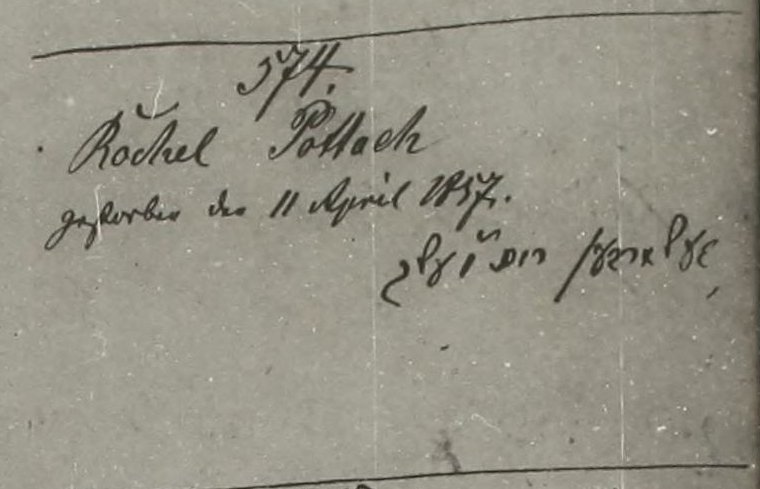 574.
Röchel Pollack
gestorben den 11 April 1857.